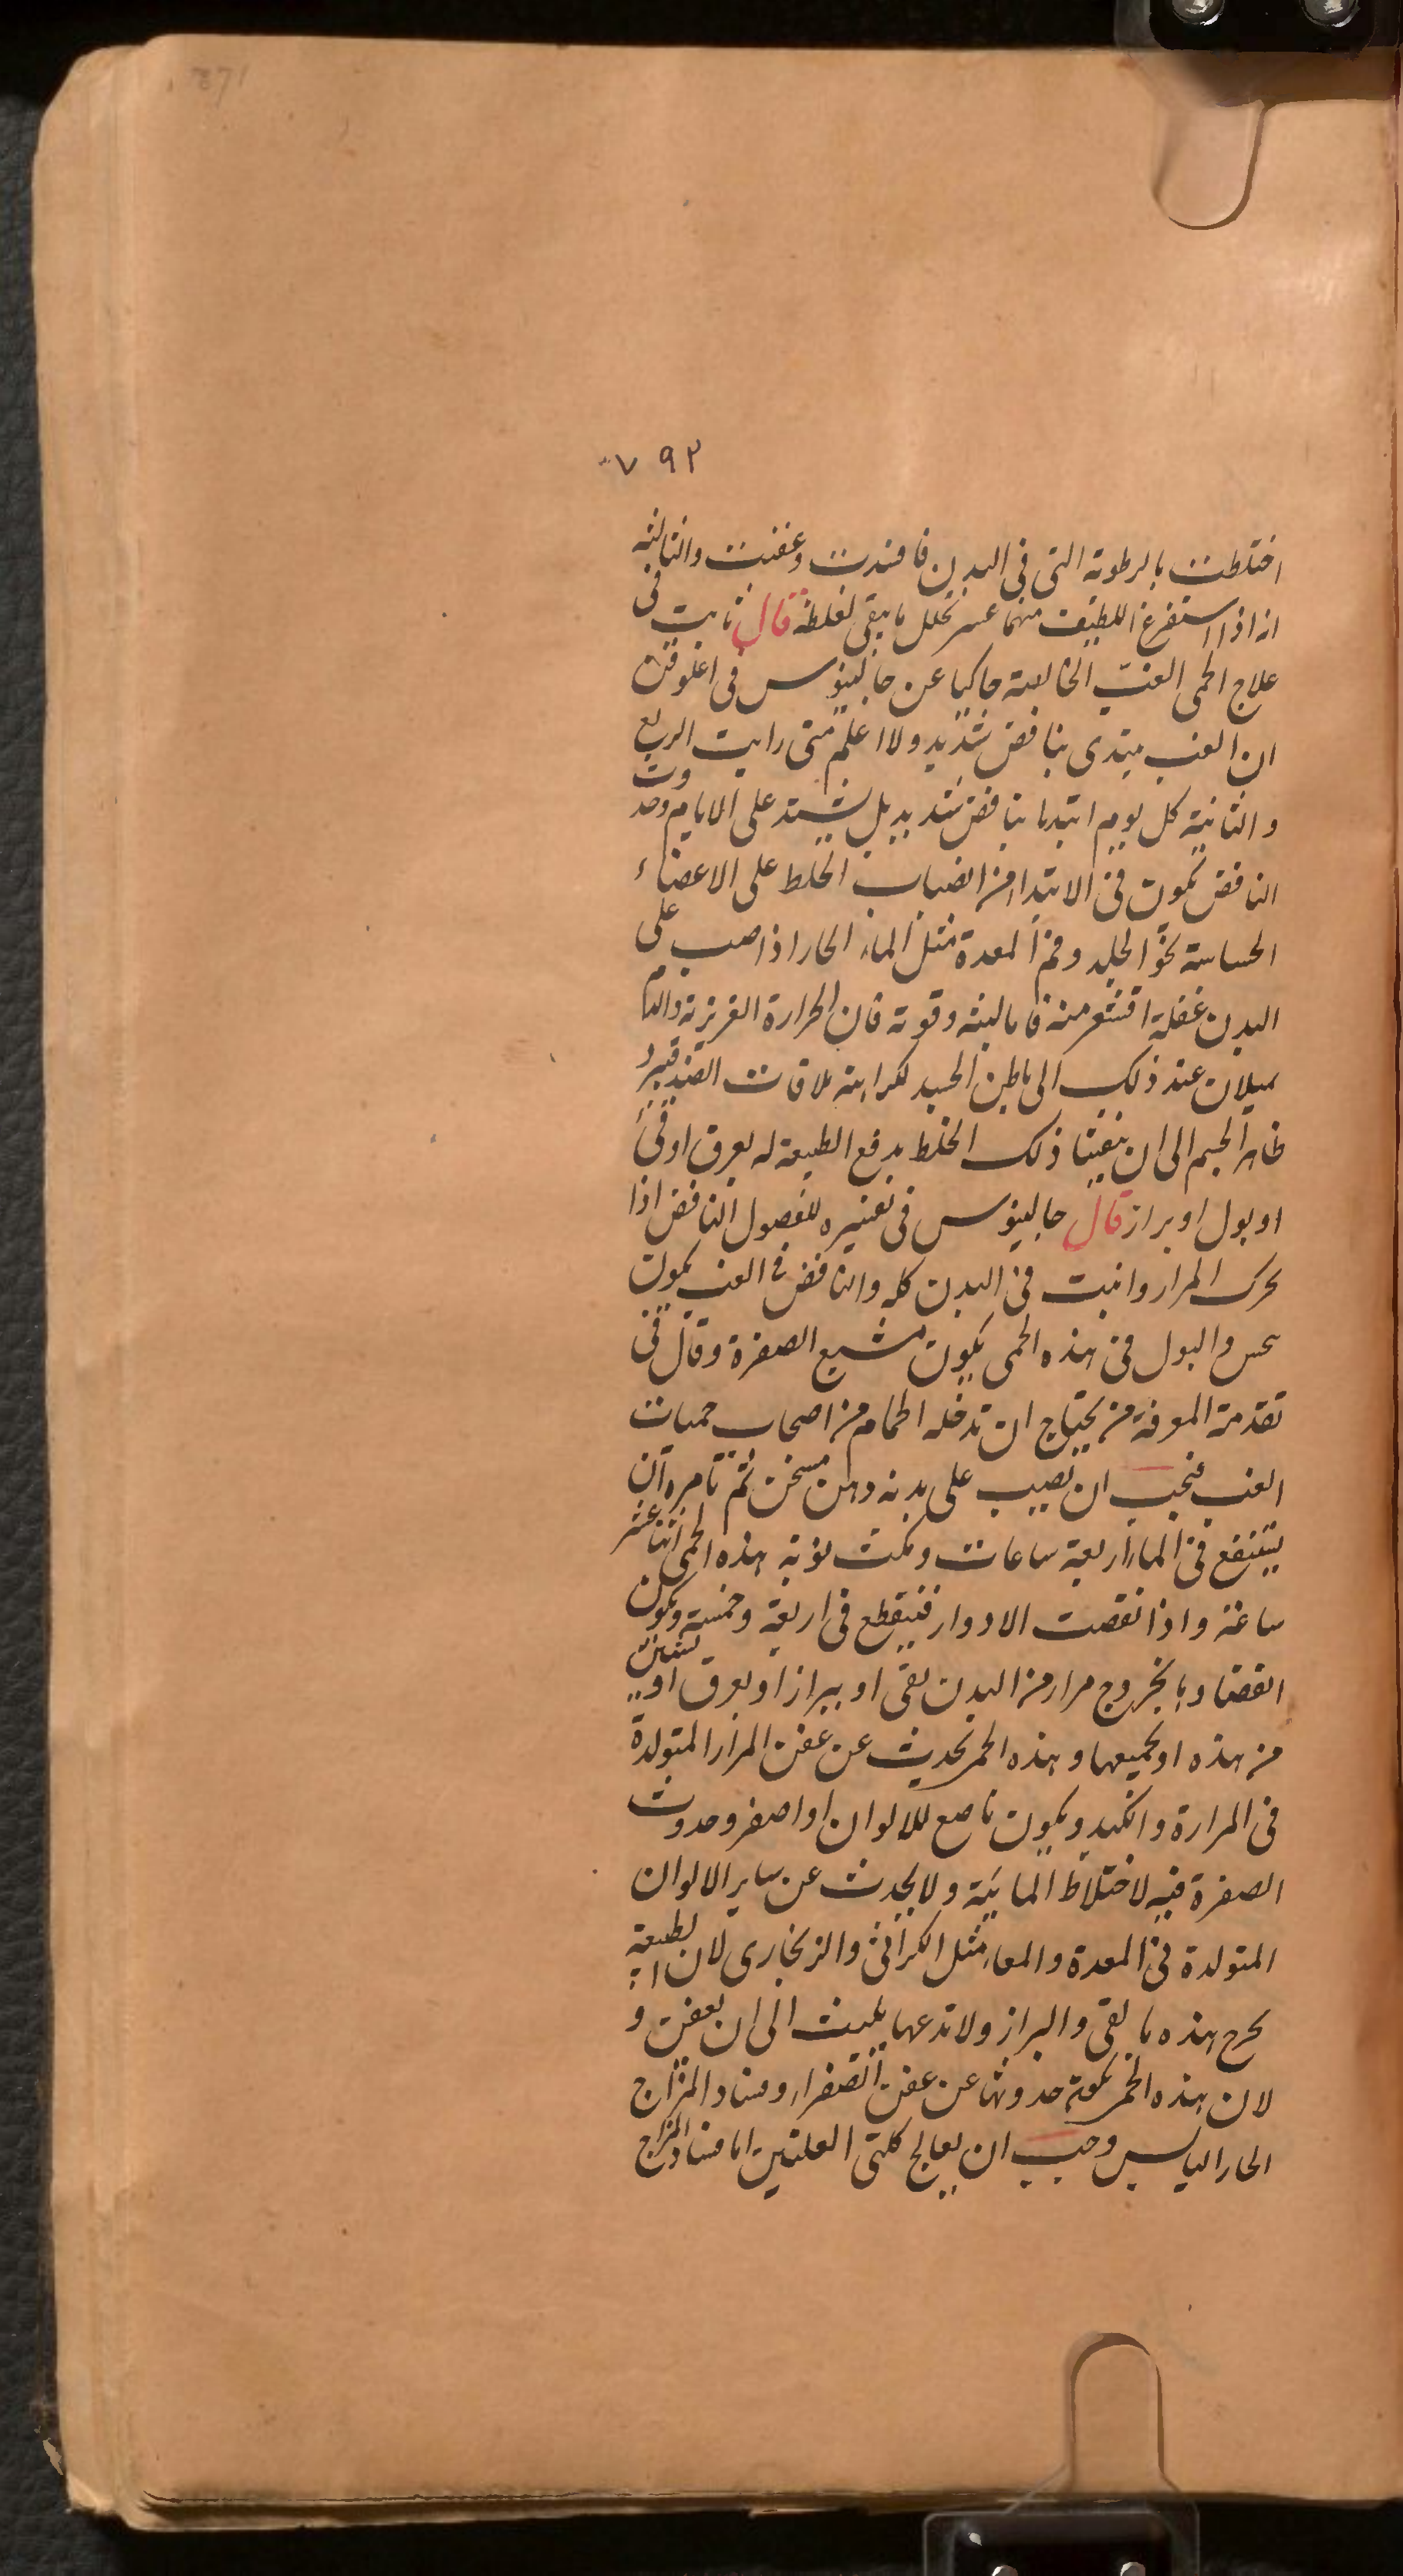 ٧٩٢
اختلطت بالرطوبة التى فى البدن فافسدت وعفنت والثالثه
انه اذا استفرغ اللطيف منها عسر تحلل ما بقى لغلظه قال ثابت فى
علاج الحمى الغب الخالصة حاكيا عن جالينوس فى اغلوقن
ان الغب يبتدى بنافض شديد ولا اعلم متى رايت الربع
والثانية كل يوم ابتدا بنافض شديد بل يشتد على الايام وحدوث
النافض يكون فى الابتدا من انصباب الخلط على الاعضاء
الحساسة نحو الجلد وفم المعدة مثل الماء الحار اذا صب على
البدن غفلة اقشعر منه فاما لبثه وقوته فان الحرارة الغريزية والدم
يميلان عند ذلك الى باطن الجسد لكراهته ملاقات الضد فيبرد
ظاهر الجسم الى ان ينفينا ذلك الخلط بدفع الطبيعة له بعرق او قى
او بول او براز قال جالينوس فى تفسيره للفصول النافض اذا
تحرك المرار وانبث فى البدن كله والنافض فى الغب يكون
بنخس والبول فى هذه الحمى يكون مشبع الصفرة وقال فى
تقدمة المعرفة من يحتاج ان تدخله الحمام من اصحاب حميات
الغب فيجب ان تصيب على بدنه دهن مسخن ثم تامره ان
يتنقع فى الماء اربعة ساعات ومكث نوبة هذه الحمى اثنا عشر
ساعة واذا نقصت الادوار فينقطع فى اربعة وخمسة ويكون
انقضاوها بخروج مرار من البدن بقى او ببراز او بعرق او بشيئين
من هذه او بجميعها وهذه الحمى تحدث عن عفن المرار المتولدة
فى المرارة والكبد ويكون ناصع للالوان او اصفر وحدوث
الصفرة فيه لاختلاط المائية ولا يحدث عن ساير الالوان
المتولدة فى المعدة والمعاء مثل الكراثى والزنجارى لان الطبيعة
تخرج هذه بالقى والبراز ولا تدعها يلبث الى ان يعفن و
لان هذه الحمى يكون حدوثها عن عفن الصفراء وفساد المزاج
الحار اليابس وجب ان يعالج كلتى العلتين اما فساد المزاج